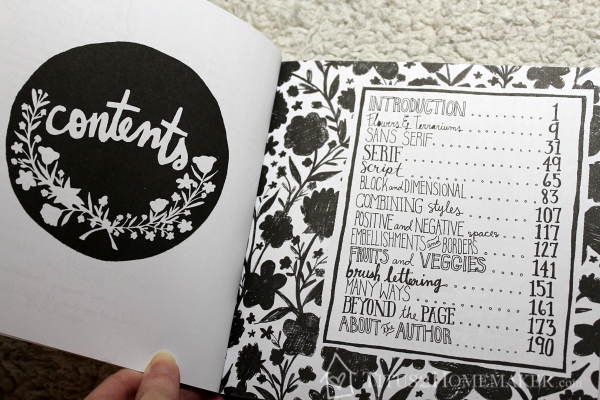 contents
INTRODUCTION 1
Flowers & Terrariums 9
SANS SERIF 31
SERIF 49
Script 65
BLOCK and DIMENSIONAL 83
COMBINING styles 107
POSITIVE and NEGATIVE spaces 117
EMBELLISHMENTS and BORDERS 127
FRUITS and VEGGIES 141
brush lettering 151
MANY WAYS 161
BEYOND the PAGE 173
ABOUT the AUTHOR 190
TITUS2HOMEMAKER.com